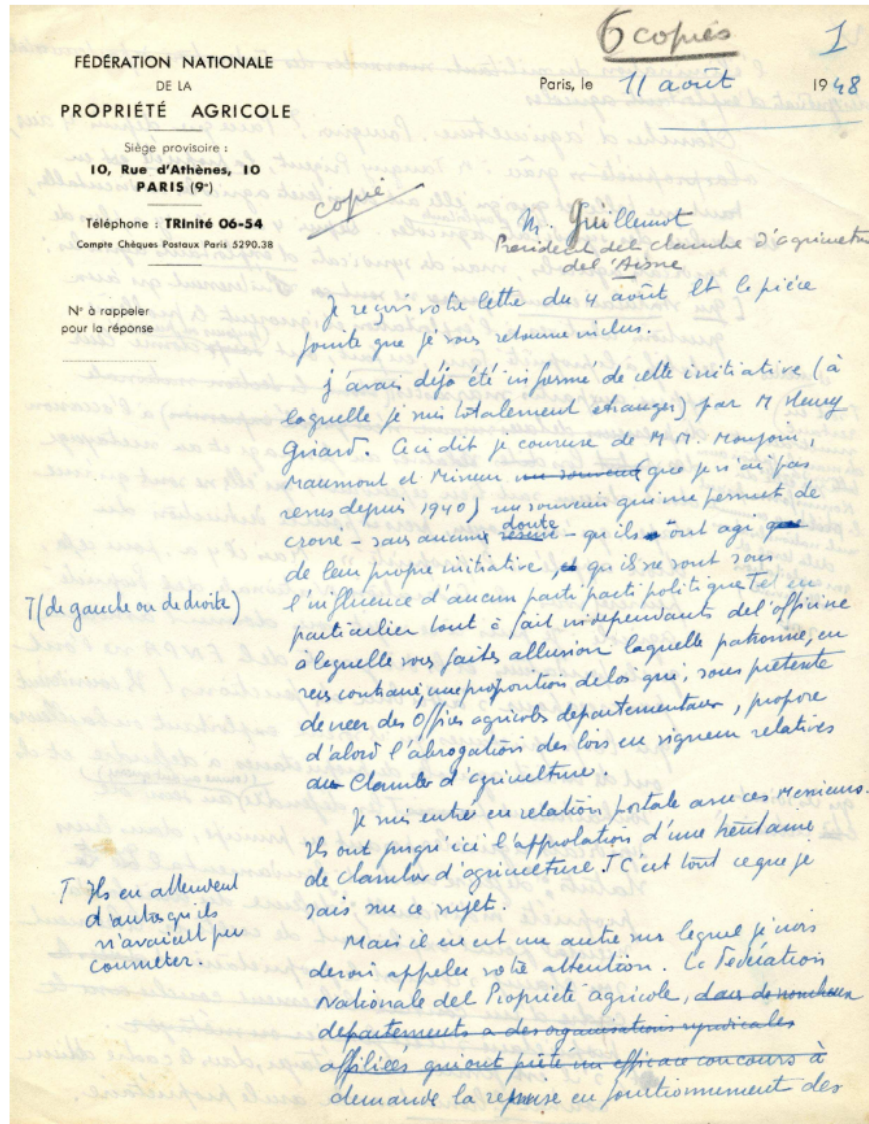 6 copies
1
FÉDÉRATION NATIONALE
DE LA
PROPRIÉTÉ AGRICOLE
Siège provisoire :
10, Rue d'Athènes, 10
PARIS (9e)
Téléphone : TRInité 06-54
Compte Chèques Postaux Paris 5290.38
N° à rappeler
pour la réponse
Paris, le 11 août 1948
copie
M. Guillemot
Président de la chambre d'agriculture
de l'Aisne
Je reçois votre lettre du 4 août et la pièce
jointe que je vous retourne inclus.
J'avais déjà été informé de cette initiative (à
laquelle je suis totalement étranger) par M Henry
Girard. Ceci dit je conserve de M M.
Maumont et Mineur un souvenir (que je n'ai pas
revus depuis 1940) un souvenir qui me permet de
croire - sans aucun doute - qu'ils ont agi que
de leur propre initiative, qu'ils ne sont sous
l'influence d'aucun parti parti politique T et en
T (de gauche ou de droite)
particulier tout à fait indépendants de l'officine
à laquelle vous faites allusion laquelle patronne, en
sens contraire, une proposition de loi qui, sous prétexte
de créer des Offices agricoles départementaux, propose
d'abord l'abrogation des lois en vigueur relatives
aux Chambres d'agriculture.
Je suis entré en relation postale avec ces Messieurs.
Ils ont jusqu'ici l'approbation d'une trentaine
de chambres d'agriculture. T C'est tout ce que je
sais sur ce sujet.
T Ils en attendent
d'autres qu'ils
n'avaient pu
consulter.
Mais il en est un autre sur lequel je crois
devoir appeler votre attention. La Fédération
Nationale de la Propriété agricole, dans de nombreux
départements a des organisations syndicales
affiliées qui ont prêté un efficace concours à
demande la reprise en fonctionnement des